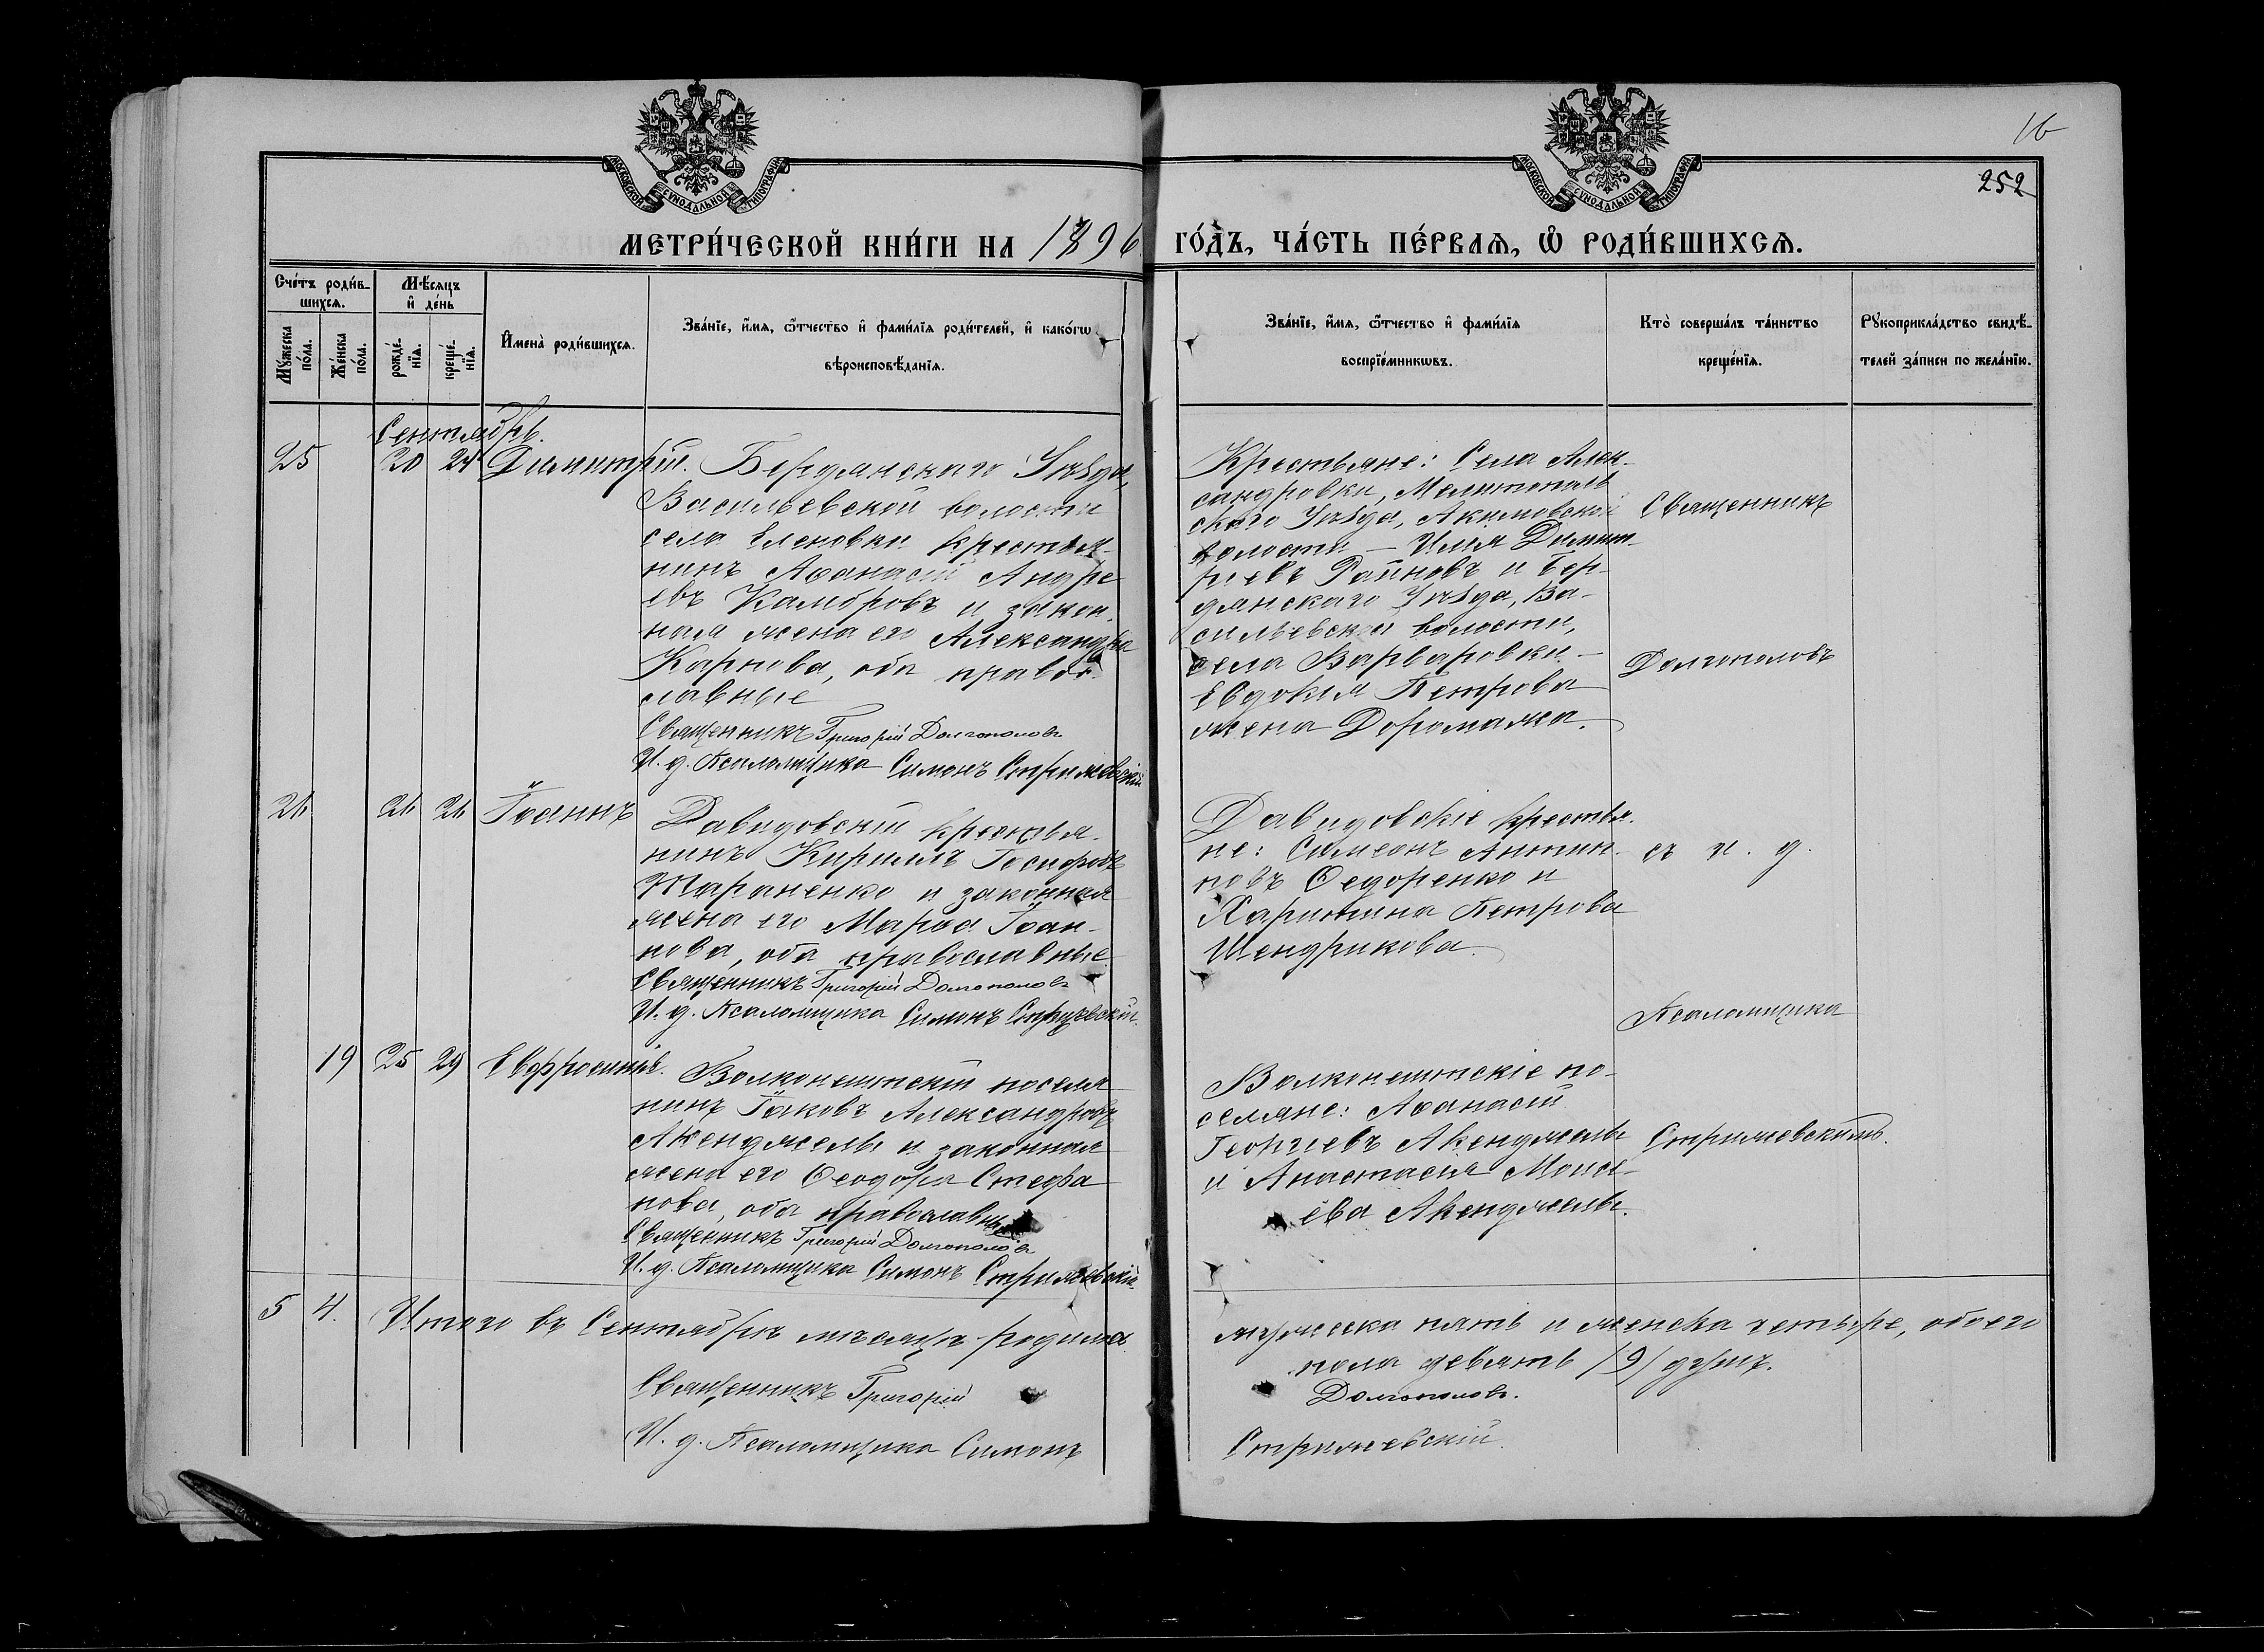 16
252
МОСКОВСКОЙ СѴНОДАЛЬНОЙ ТИПОГРАФІИ
МОСКОВСКОЙ СѴНОДАЛЬНОЙ ТИПОГРАФІИ
МЕТРИ́ЧЕСКОЙ КНИ́ГИ НА 1896 ГО́ДЪ, ЧА́СТЬ ПЕ́РВАѦ, Ѡ РОДИ́ВШИХСѦ.
Сче́тъ роди́в-
шихсѧ.
Мѣ́сѧцъ
и де́нь
Мꙋ́жеска по́ла.
Же́нска по́ла.
рожде́-
нїѧ.
креще́-
нїѧ.
Имена̀ роди́вшихсѧ.
Зва́нїе, и́мѧ, ѻ́тчество и фами́лїѧ роди́телей, и како́гѡ
вѣроисповѣ́данїѧ.
Зва́нїе, и́мѧ, ѻ́тчество и фами́лїѧ
воспрїе́мникѡвъ.
Кто̀ соверша́лъ та́инство
креще́нїѧ.
Рꙋкоприкла́дство свидѣ́-
телей за́писи по жела́нїю.
Сентябрь.
25 20 24 Димитрій.
Бердянскаго Уѣзда,
Васильевской волости
села Еленовки крестья-
нинъ Аѳанасій Андре
евъ Камбровъ и закон-
ная жена его Александра
Карпова, оба право-
славные
Священникъ Григорій Долгополовъ
И. д. Псаломщика Симонъ Стрижевскій
Крестьяне: Села Алек-
сандровки, Мелитополь
скаго Уѣзда, Акимовской
волости — Илія Димит-
ріевъ Райновъ и Бер-
дянскаго Уѣзда, Ва-
сильевской волости,
села Варваровки —
Евдокія Петрова
жена Доромажа.
Священникъ
Долгополовъ
26 26 26 Іоаннъ
Давидовскій крестья-
нинъ Кириллъ Іосифовъ
Тараненко и законная
жена его Марѳа Іоан-
нова, оба православные
Священникъ Григорій Долгополовъ
И. д. Псаломщика Симонъ Стрижевскій.
Давидовскіе крестья-
не: Симеонъ Антип-
повъ Ѳедоренко и
Харитина Петрова
Шендрикова.
съ и. д.
Псаломщика
19 25 29 Евфросинія.
Волконештскій поселя
нинъ Іаковъ Александровъ
Акенджелы и законная
жена его Ѳеодора Стефа
нова, оба православные
Священникъ Григорій Долгополовъ
И. д. Псаломщика Симонъ Стрижевскій
Волконештскіе по-
селяне: Аѳанасій
Георгіевъ Акенджелы
и Анастасія Моисе-
ева Акенджелы.
Стрижевскимъ.
5 4. Итого въ Сентябрѣ мѣсяцѣ родилось
мужеска пять и женска четыре, обоего
пола девять /9/ душъ.
Священникъ Григорій Долгополовъ.
И. д. Псаломщика Симонъ Стрижевскій.